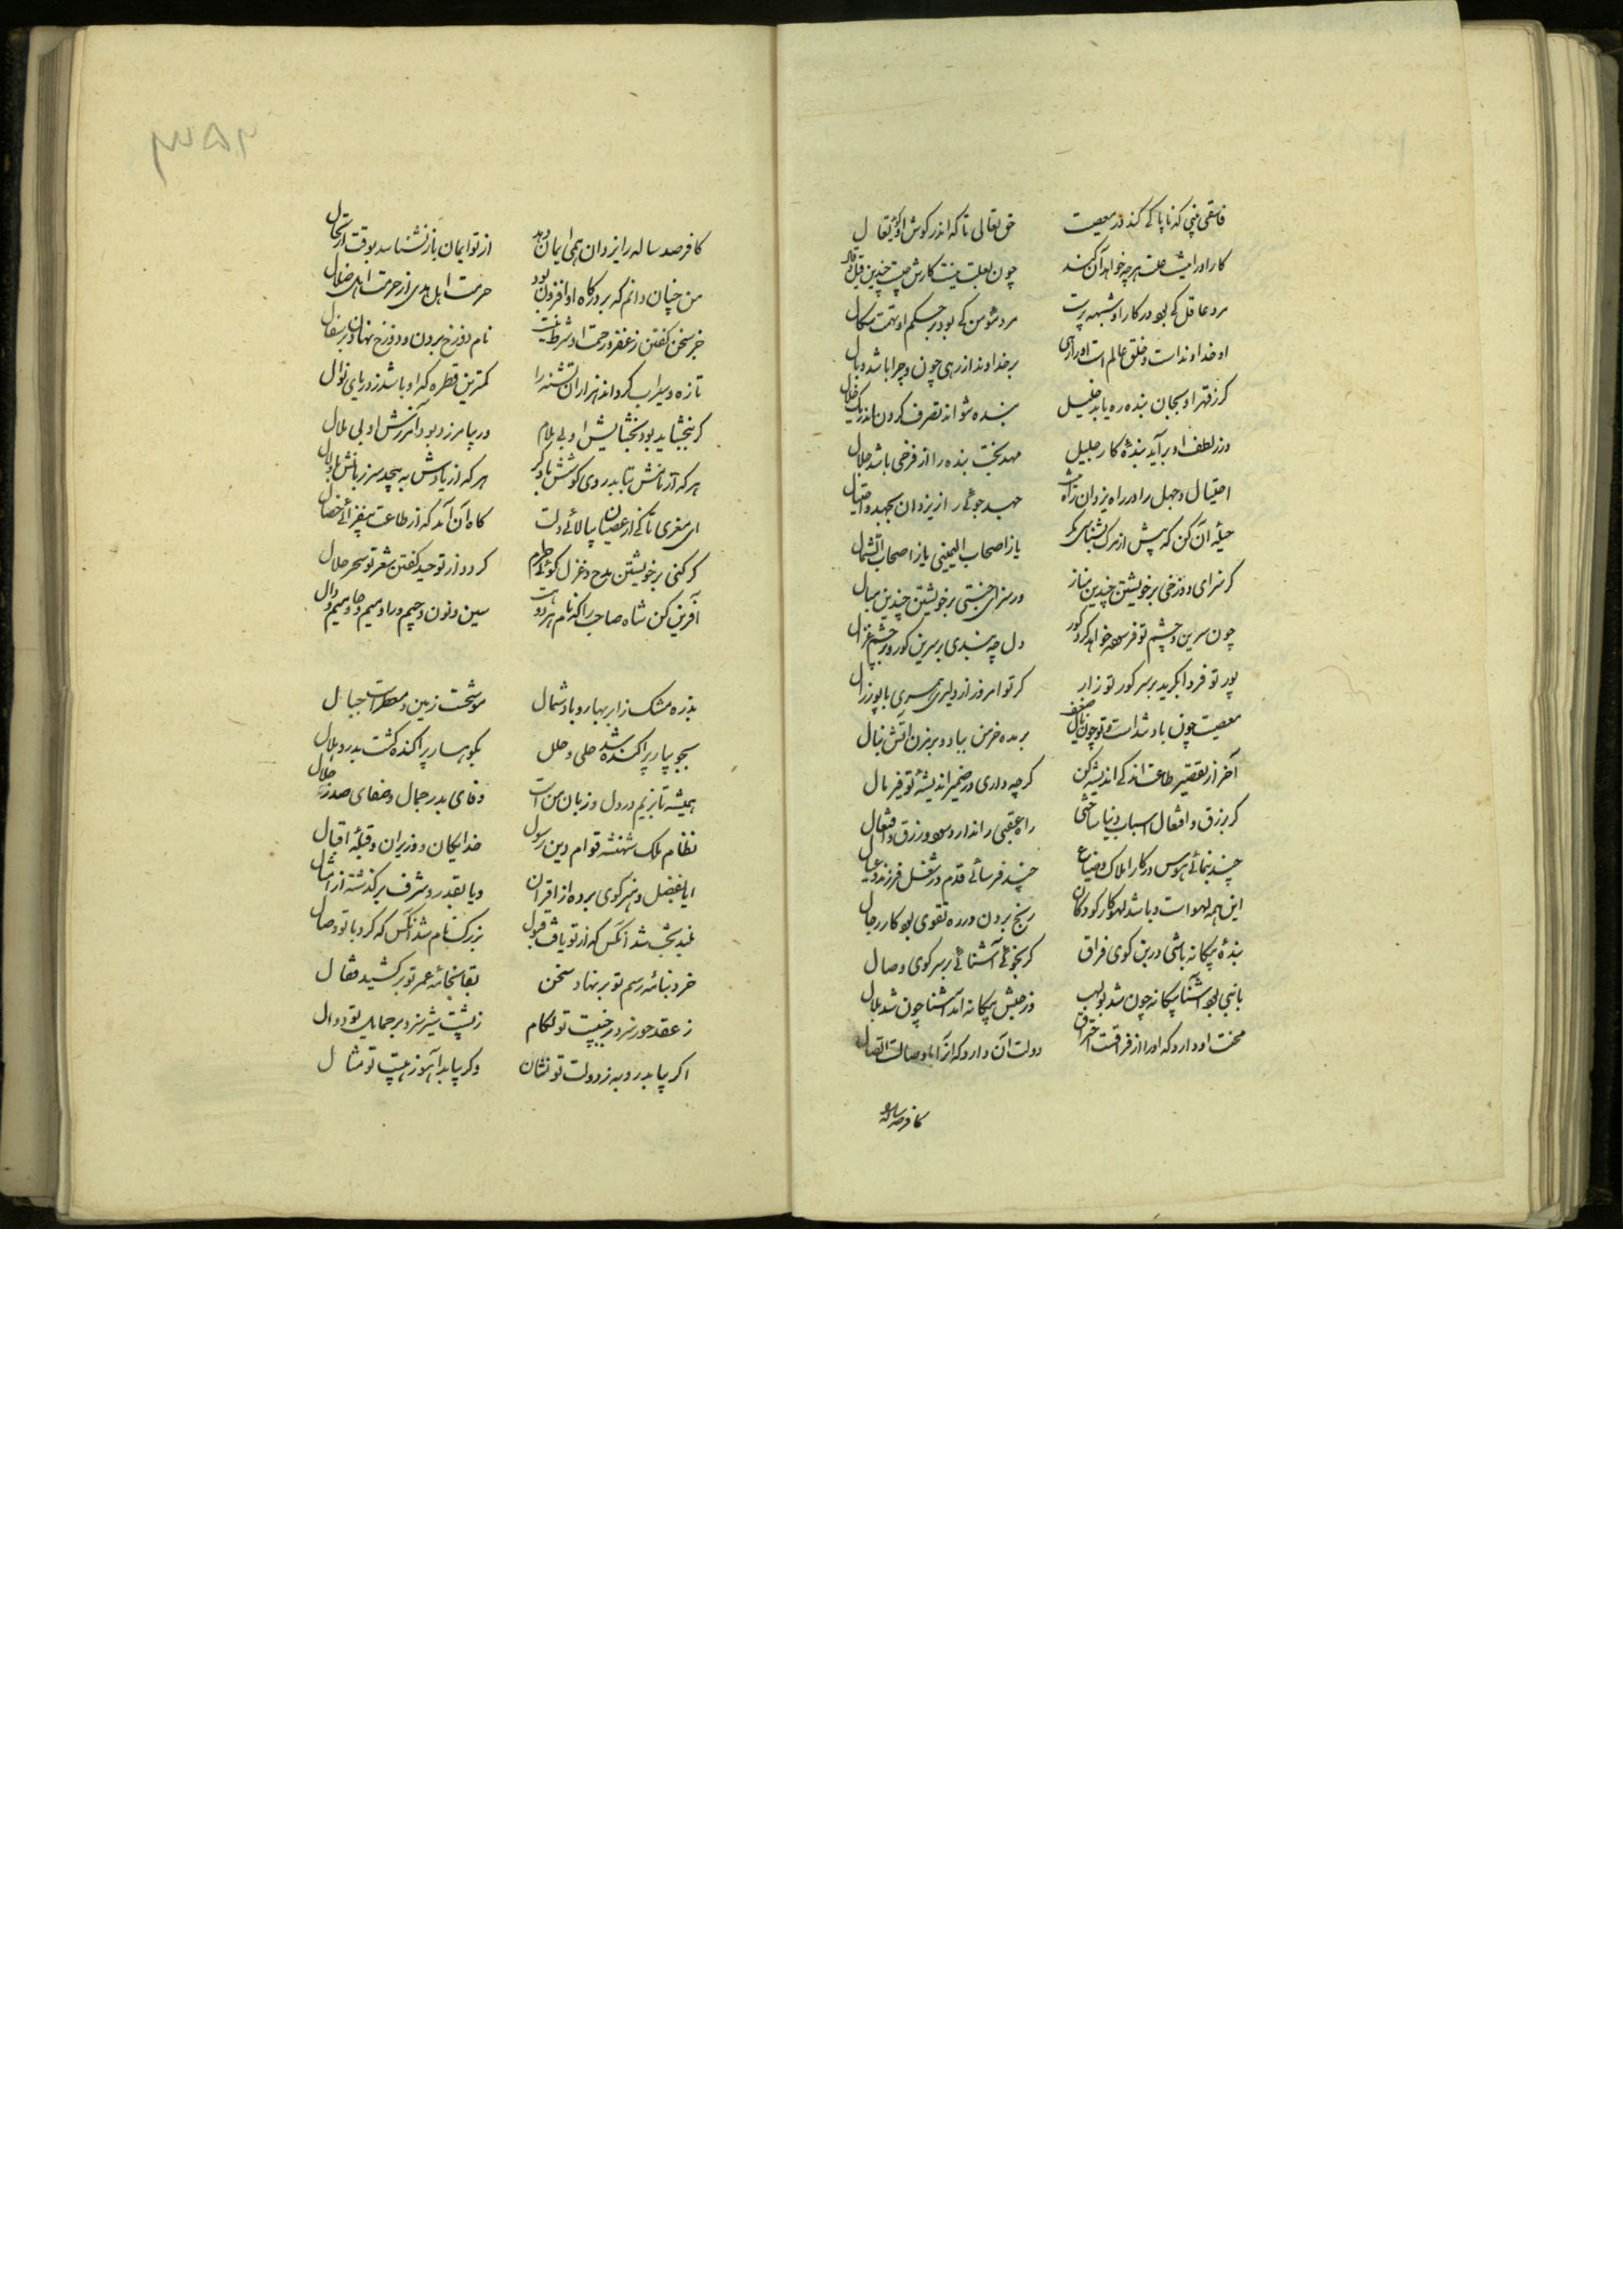 فاسقی بینی که ناپاکی کند در معصیت حق تعالی تا که اندر گوش او گوید تعال
کار او را نیست علت هرچه خواهد آن کند چون بعلت نیست کارش چیست چندین قیل و قال
مرد عاقل کی بود در کار او شبهه پرست مرد مؤمن کی بود بر حکم او تهمت سکال
او خداوند است و خلق عالم است او را رهی بر خداوند از رهی چون و چرا باشد وبال
کر ز قهر او بجان بنده ره یابد خلیل بنده نتواند تصرف کردن اندر یک خلال
ور ز لطف او برآید بندهٔ کار جلیل مهد بخت بنده را از فرخی باشد جلال
احتیال و جهل را در راه یزدان راه نیست جهد جوئی راز یزدان بجهد و احتیال
حیلهٔ آن کن که پیش از مرک بشناسی مکر یاز اصحاب الیمینی یاز اصحاب الشمال
کر سزای دوزخی بر خویشتن چندین مناز ور سزای جنتی بر خویشتن چندین مبال
چون سرین و چشم تو فرسوده خواهد کرد کور دل چه بندی بر سرین کور و بر چشم غزال
پور تو فردا بکرید بر سر کور تو زار کر تو امروز از دلیری همسری با پور زال
معصیت چون باد شد است و تو چون بر بده خرمن بباد و بر مزن آتش نبال
آخر از تقصیر طاعت اندکی اندیشه کن کرچه داری در ضمیر اندیشهٔ توفیر مال
کر بزرق و افتعال اسباب دنیا ساختی راه عقبی را ندارد سود زرق و افتعال
چند بنمائی هوس در کار املاک و ضیاع چند فرسائی قدم در شغل فرزند و عیال
این همه لهو است و باشد لهو کار کودکان رنج بردن در ره تقوی بود کار رجال
بندهٔ بیکانه باشی در بن کوی فراق کر بجوئی آشنائی بر سر کوی وصال
با نبی بود آشنا بیکانه چون شد بولهب وز حبش بیکانه آمد آشنا چون شد بلال
محنت او دارد که او را از فراقست احتراق دولت آن دارد که او را با وصالست اتصال
کافر صد ساله
۳۵۲
کافر صد ساله را یزدان همی ایمان دهد از تو ایمان باز نشناسد بوقت ارتحال
من چنان دانم که بر درکاه او افزون بود حرمت اهل هدی از حرمت اهل ضلال
جز سخن کفتن ز غفر و رحمت او شرط نیست نام دوزخ بردن و دوزخ نهادن بر سفال
تازه و سیراب کرداند هزاران تشنه را کمترین قطره که او باشد ز دریای نوال
کر ببخشاید بود بخشایش او بی ملام ور بیامرزد بود آمرزش او بی ملال
هر که از یادش بپیچد سر زبانش باد لال
ای معزی تا کی از عصیان بیالائی دلت کاه آن آمد که از طاعت بیفزائی خصال
کر کنی بر خویشتن مدح و غزل کوئی حرام کردد از توحید کفتن شعر تو سحر حلال
آفرین کن شاه صاحب را که نام هر دو هست سین و نون و جیم و را و میم و حا و میم و دال
بذره مشک ز ابر بهار و باد شمال موشحست زمین و معطر است جبال
بجویبار پراکنده شد حلی و حلل بکوهسار پراکنده کشت بدر و هلال
همیشه تا بزیم در دل و زبان من است وفای بدر جمال و صفای صدر جلال
نظام ملک شهنشه قوام دین رسول خدایکان وزیران و قبلهٔ اقبال
ایا بفضل و هنر کوی برده از اقران و یا بقدر و شرف برکذشته از امثال
بلند بخت شد آنکس که از تو یافت قبول بزرک نام شد آنکس که کرد با تو وصال
خرد بنامه رسم تو بر نهاد سخن بقا بخامه عمر تو برکشید مقال
ز عقد حور سزد در جنیبت تو لکام ز پشت شیر سزد بر حمایل تو دوال
اکر بیابد روبه ز دولت تو نشان وکر بیابد آهو ز هیبت تو مثال